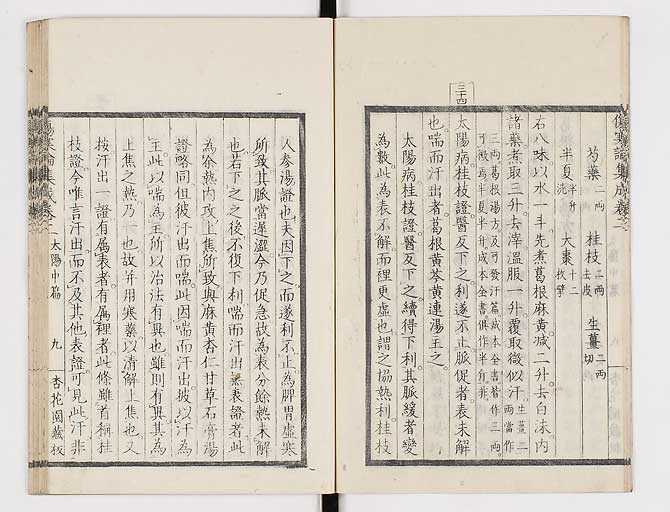 傷寒論集成卷二
芍藥二兩 桂枝二兩去皮 生薑二兩切
半夏半升洗 大棗十二枚擘
右八味以水一斗先煮葛根麻黃減二升去白沫內
諸藥煮取三升去滓溫服一升覆取微似汗生薑二兩當作
三兩葛根湯方及可發汗篇成本全書皆作三兩
可徵焉半夏半升成本全書俱作半斤非
三十四
太陽病桂枝證醫反下之利遂不止脈促者表未解
也喘而汗出者葛根黃芩黃連湯主之
太陽病桂枝證醫反下之續得下利其脈緩者變
為數此為表不解而裡更虛也謂之協熱利桂枝
人參湯證也夫因下之而遂利不止為脾胃虛寒
所致其脈當遲澀今乃促急故為表分餘熱未解
也若下之之後不復下利喘而汗出無表證者此
為餘熱內攻上焦所致與麻黃杏仁甘草石膏湯
證略同但彼汗出而喘此因喘而汗出彼以汗為
主此以喘為主所以冶法有異也雖則有異其為
上焦之熱乃一也故并用寒藥以清解上焦也又
按汗出一證有屬表者有屬裡者此條雖首稱桂
枝證今唯言汗出而不及其他表證可見此汗非
傷寒論集成卷二 太陽中篇 九 杏花園藏板